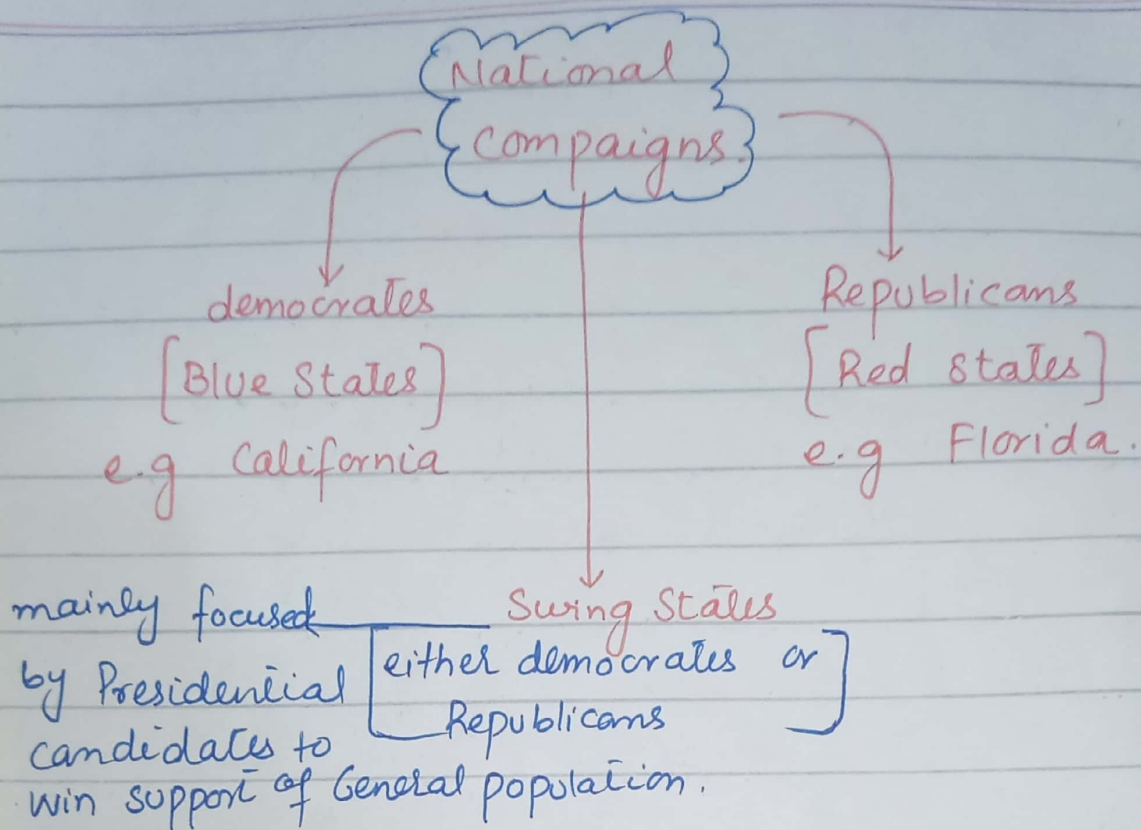 National
compaigns.
democrates
[Blue States]
e.g California
Republicans
[Red states]
e.g Florida.
Swing States
[either democrates or
Republicans]
mainly focused
by Presidential
candidates to
win support of General population.